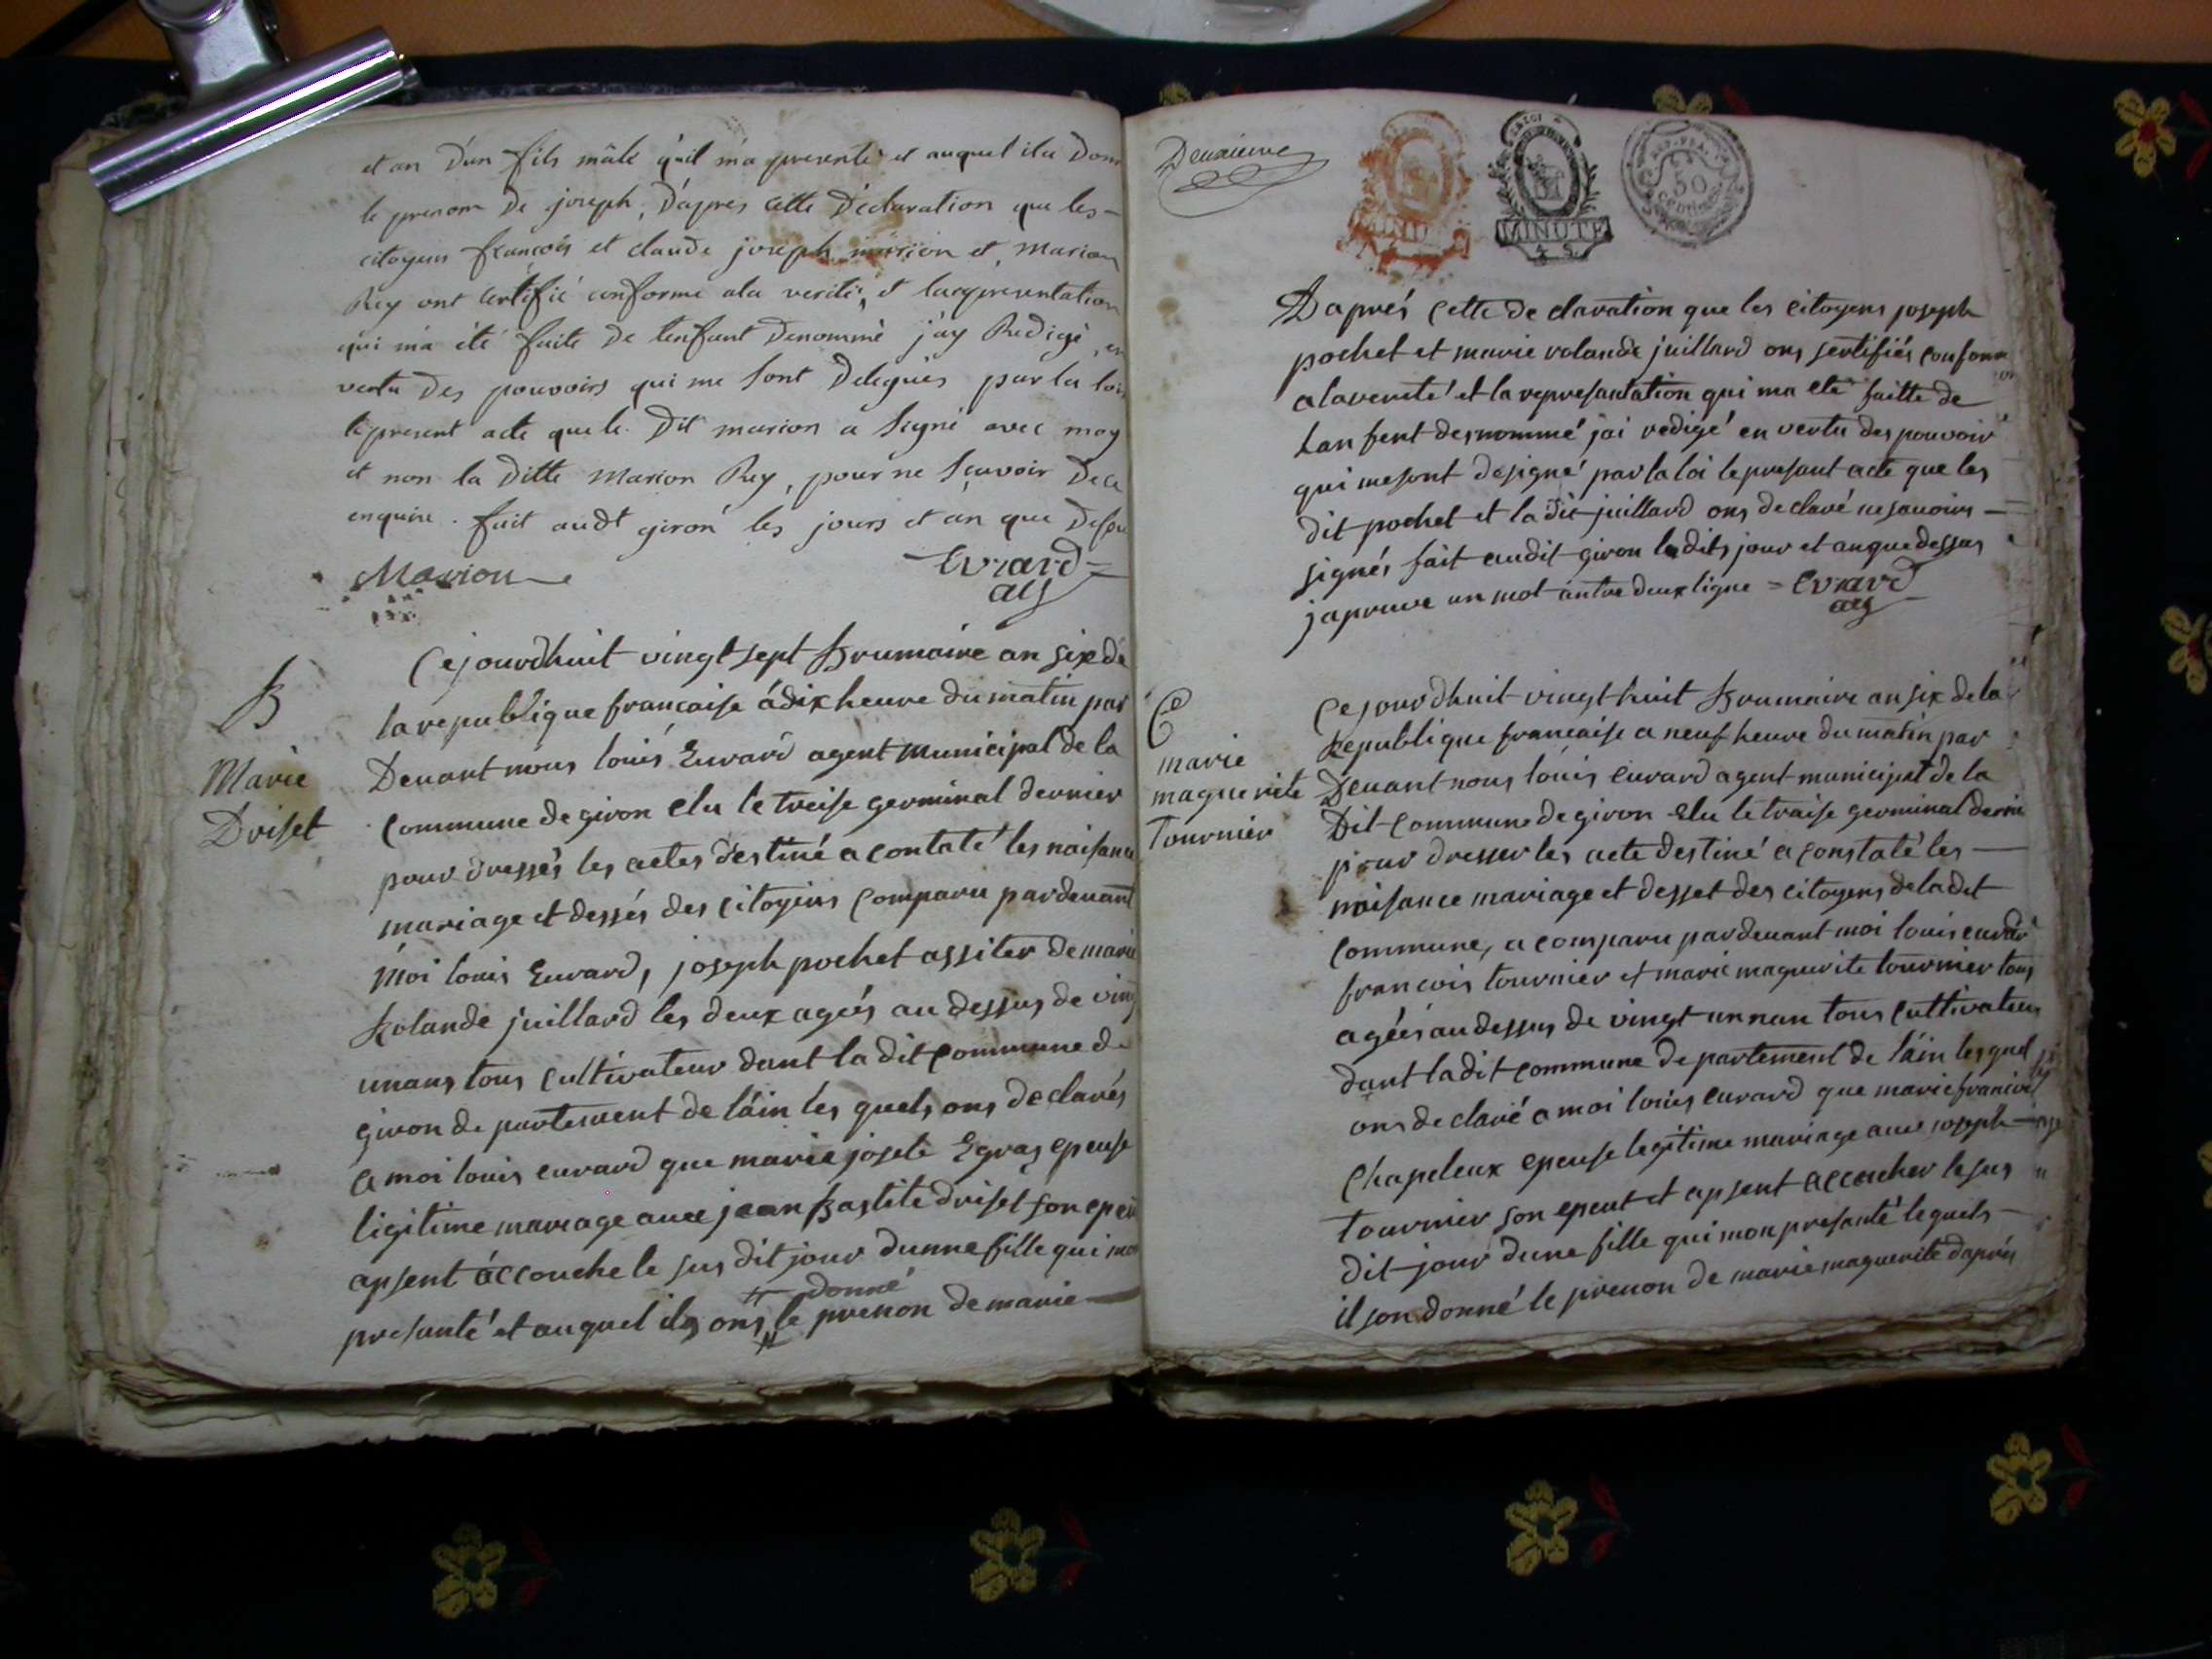 et an D'un fils mâle qu'il m'a presenté et auquel il a Donn
le prenom De joseph, D'apres cette Déclaration que les
citoyens françois et claude joseph marion et Marion
Rey ont certifié conforme a la verité, et la representation
qui m'a été faite De l'enfant Denommé j'ay Redigé, en
vertu Des pouvoirs qui me sont Delegués par la loi
le present acte que le Dit marion a signé avec moy
et non la Ditte Marion Rey, pour ne sçavoir De ce
enquise. fait audt giron les jours et an que Dessu
Marion
Evrard
ag
B
Marie
Driset
Cejourdhuit vingt sept Brumaire an six de
la republique francaise à dix heure du matin par
Devant nous louis Euvard agent municipal de la
commune de giron elu le treise germinal dernier
pour dressés les actes destiné a contaté les naisance
mariage et dessés des citoyens comparu pardeuant
moi louis Euvard, joseph pochet assiter de marie
Rolande juillard les deux agés au dessus de ving
unans tous cultivateur dant la dit commune de
giron de partement de láin les quels ons declarés
a moi louis euvard que marie josete Egraz epeuse
ligitime mariage auec jean Bastite driset son epeu
apsent accouche le sus dit jour dunne fille qui mon
donné
presanté et auquel ils ons le prenon de marie
Devaiune
MINUTE
MINUTE
50
centimes
Daprés cette declaration que les citoyens joseph
pochet et marie rolande juillard ons sertifiés conform
a laverité et la represantation qui ma eté faitte de
lan fent desnommé jai redigé en vertu des pouvoir
qui me sont designé par la loi le presant acte que les
dit pochet et la dit juillard ons declaré ne savoirs
signés fait audit giron le dits jour et an que dessus
japreuve un mot antre deux ligne = Evrard
ag
marie
maguerite
Tournier
Cejourdhuit vingt huit Brumaire an six de la
Republique francaise a neuf heure du matin par
Devant nous louis euvard agent municipal de la
Dit commune de giron elu le traise germinal dernie
pour dresser les acte destiné a constaté les
naisance mariage et desset des citoyens de la dit
commune, a comparu pardeuant moi louis euvard
francois tournier et marie maguerite tournier tous
agées au dessus de vingt unnan tous cultivateur
dant la dit commune departement de láin lesquel
ons declaré a moi louis euvard que marie francois
Chapeleux epeuse legitime mariage auec joseph
Tournier son epeut et apsent accoucher le sus
dit jour dune fille qui mon presanté lequels
il son donné le prenon de marie maguerite daprés